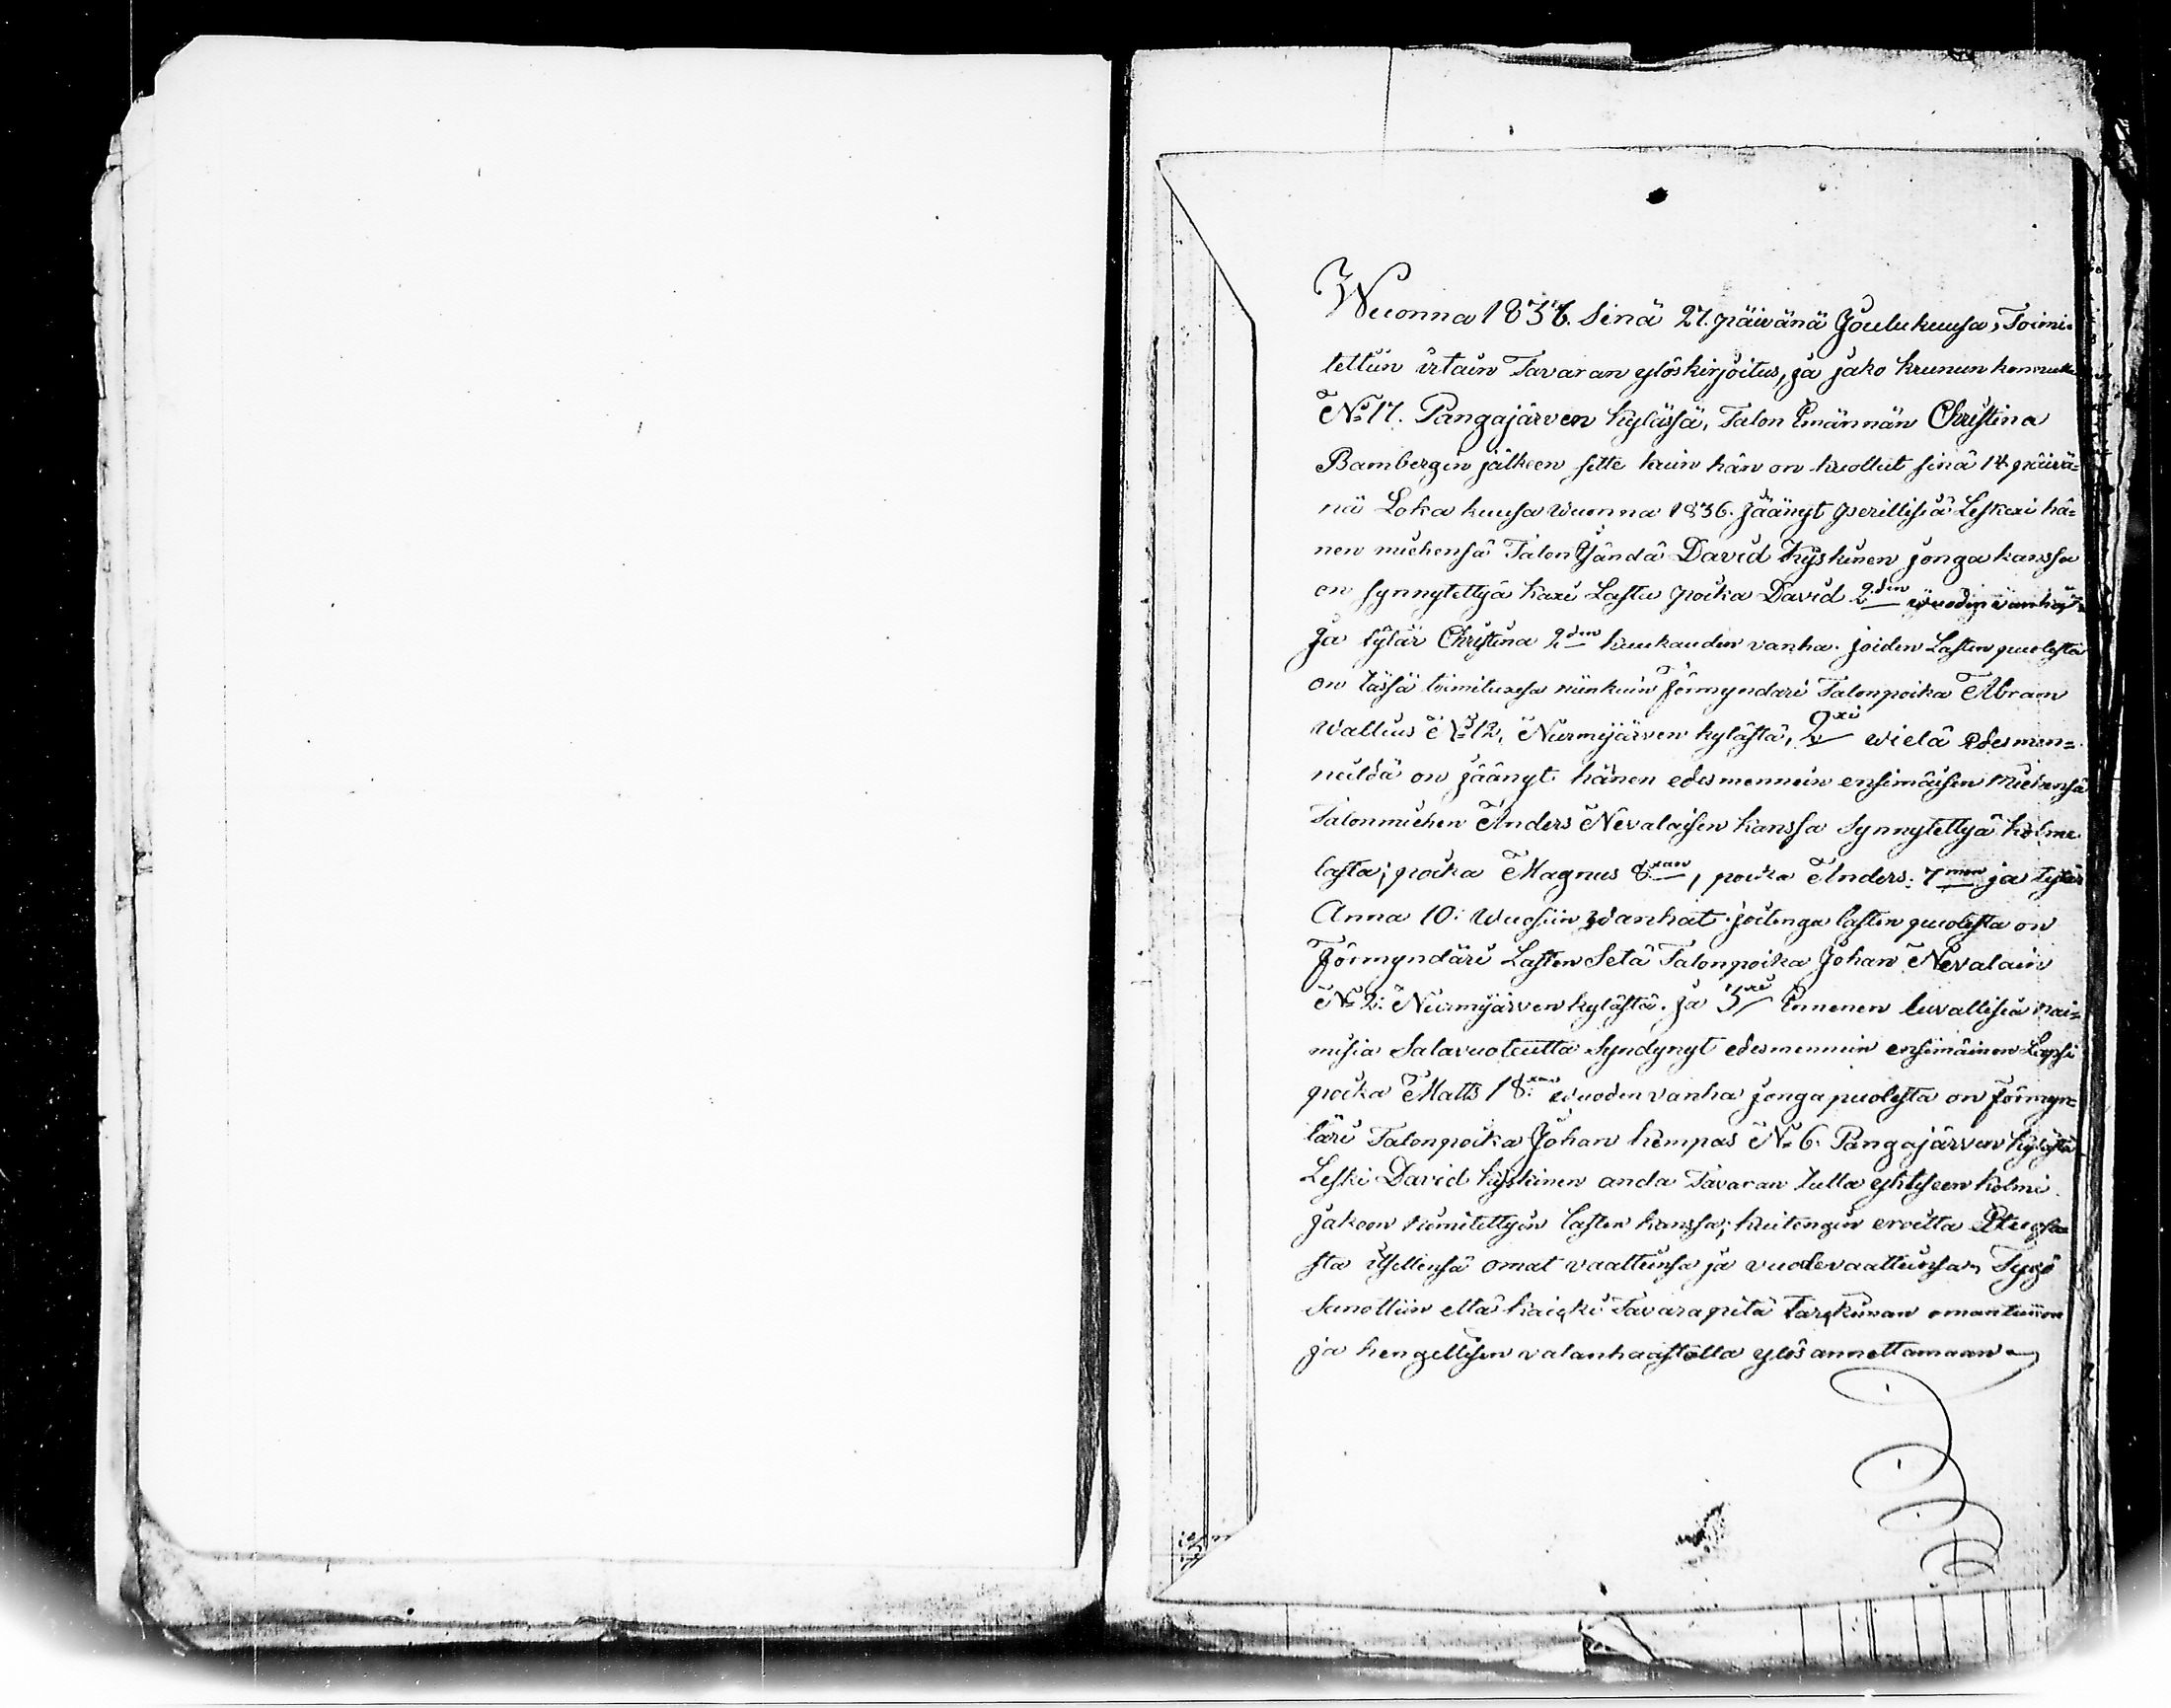 Wuonna 1836. Sinä 27. päivänä Joulukuusa, Toimi-
tettün irtain Tavaran ylöskirjoitus, ja jako krunun
N:o 17. Pangajärven kylässä, Talon Emännän Christina
Bambergin jälkeen sitte kuin hän on kuollut sinä 14 päivä=
nä Lokakuusa wuonna 1836. Jäänyt perillisiä Leskexi hä=
nen miehensä Talon Isändä David Kyskinen jonga kanssa
on synnytettyä kaxi Lasta poika David 2den wuoden vanha,
Ja tytär Christina 2den kuukauden vanha. joiden Lasten puolesta
on tässä toimituxesa niinkuin Förmyndäri Talonpoika Abram
Wallius N:o 12, Nurmijärven kylästä, 2xi wielä Edesmen=
neildä on jäänyt hänen edesmennein ensimäisen Miehensä
Talonmiehen Anders Nevalaisen kanssa Synnytettyä kolme
lasta; poika Magnus 8xan, poika Anders: 7män ja tytär
Anna 10: Wuosiin Wanhat. joitenga lasten puolesta on
Förmyndäri Lasten Setä Talonpoika Johan Nevalain
N:o 2: Nurmijärven kylästä. Ja 3xi Ennenen luvallisia nai=
misia Salavuoteutta Syndynyt edesmennein ensimäinen Lapsi
poika Matts 18xan wuoden vanha jonga puolesta on förmyn=
täri Talonpoika Johan Kempas N:o 6. Pangajärven kylästä
Leski David Kyskinen anda Tavaran tulla yhteseen kolmi
Jakoon nimitettyin lasten kanssa; kuitengin eroitta
sta itsellensä omat vaattensa ja vuodevaattensa,
Sanottiin että kaicki Tavara pitä Tarckiman omantunnon
ja hengellisen valanhaastolla ylös annettamaan